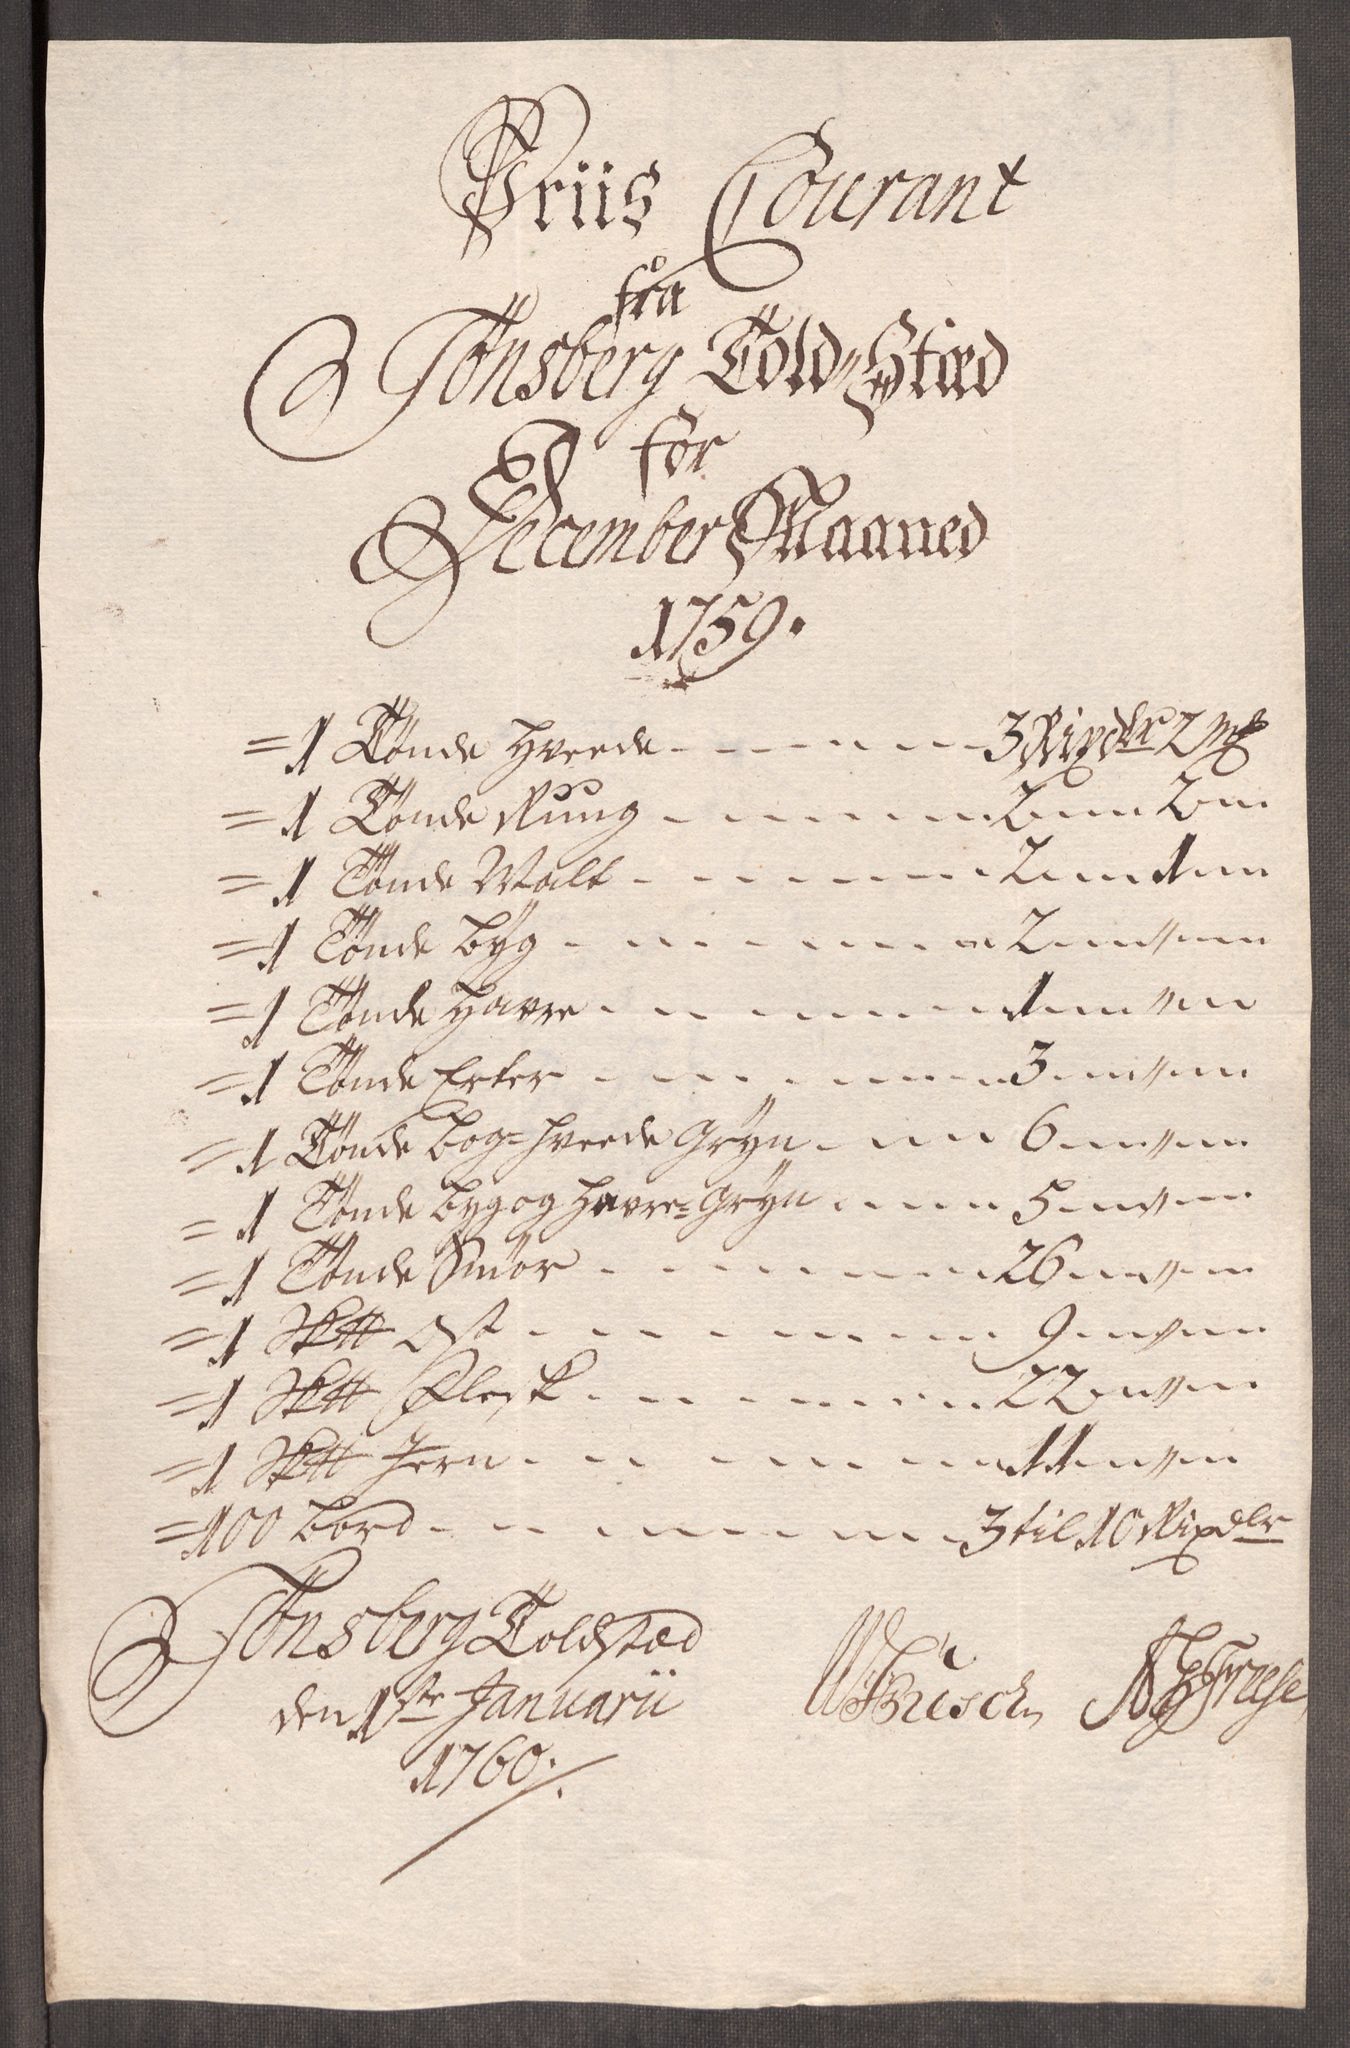 Priis Courant
fra
Tönsberg Told-Stæd
for
December Maaned
1759.
=1 Tönde Hveede - - - - - 3 Rixdlr 2 mk
=1 Tönde Rug - - - - - 2 " 2 "
=1 Tönde Malt - - - - - 2 " 1 "
=1 Tönde Byg - - - - - 2 " " "
=1 Tönde Havre - - - - - 1 " " "
=1 Tönde Erter - - - - - 3 " " "
=1 Tönde Bog=Hveede Gryn - - - 6 " " "
=1 Tönde Byg og Havre=Gryn - - - 5 " " "
=1 Tönde Smör - - - - - 26 " " "
=1 Sk℔ Ost - - - - - 9 " " "
=1 Sk℔ Flesk - - - - - 22 " " "
=1 Sk℔ Jern - - - - - 11 " " "
=100 Bord - - - - - 3 til 10 Rixdlr
Tönsberg Toldstæd
den 1ste Januarii
1760.